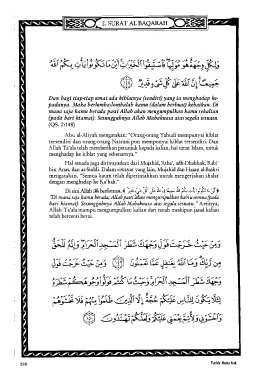 2. SURAT AL BAQARAH
وَلِكُلٍّ وِجْهَةٌ هُوَ مُوَلِّيهَا فَاسْتَبِقُوا الْخَيْرَاتِ أَيْنَ مَا تَكُونُوا يَأْتِ بِكُمُ اللَّهُ
جَمِيعًا إِنَّ اللَّهَ عَلَى كُلِّ شَيْءٍ قَدِيرٌ ١٤٨
Dan bagi tiap-tiap umat ada kiblatnya (sendiri) yang ia menghadap ke-
padanya. Maka berlomba-lombalah kamu (dalam berbuat) kebaikan. Di
mana saja kamu berada pasti Allah akan mengumpulkan kamu sekalian
(pada hari kiamat). Sesungguhnya Allah Mahakuasa atas segala sesuatu.
(QS. 2:148)
Abu al-Aliyah mengatakan: "Orang-orang Yahudi mempunyai kiblat
tersendiri dan orang-orang Nasrani pun mempunyai kiblat tersendiri. Dan
Allah Ta'ala telah memberikan petunjuk kepada kalian, hai umat Islam, untuk
menghadap ke kiblat yang sebenarnya."
Hal senada juga diriwayatkan dari Mujahid, 'Atha', adh-Dhahhak, Rabi'
bin Anas, dan as-Suddi. Dalam riwayat yang lain, Mujahid dan Hasan al-Bashri
mengatakan, "Semua kaum telah diperintahkan untuk mengerjakan shalat
dengan menghadap ke Ka'bah."
Di sini Allah berfirman,
"Di mana saja kamu berada, Allah pasti akan mengumpulkan kamu semua (pada
hari kiamat). Sesungguhnya Allah Mahakuasa atas segala sesuatu." Artinya,
Allah Ta'ala mampu mengumpulkan kalian dari tanah meskipun jasad kalian
telah bercerai berai.
وَمِنْ حَيْثُ خَرَجْتَ فَوَلِّ وَجْهَكَ شَطْرَ الْمَسْجِدِ الْحَرَامِ وَإِنَّهُ لَلْحَقُّ
مِن رَّبِّكَ وَمَا اللَّهُ بِغَافِلٍ عَمَّا تَعْمَلُونَ ١٤٩ وَمِنْ حَيْثُ خَرَجْتَ فَوَلِّ
وَجْهَكَ شَطْرَ الْمَسْجِدِ الْحَرَامِ وَحَيْثُ مَا كُنتُمْ فَوَلُّوا وُجُوهَكُمْ شَطْرَهُ
لِئَلَّا يَكُونَ لِلنَّاسِ عَلَيْكُمْ حُجَّةٌ إِلَّا الَّذِينَ ظَلَمُوا مِنْهُمْ فَلَا تَخْشَوْهُمْ
وَاخْشَوْنِي وَلِأُتِمَّ نِعْمَتِي عَلَيْكُمْ وَلَعَلَّكُمْ تَهْتَدُونَ ١٥٠
Tafsir Ibnu